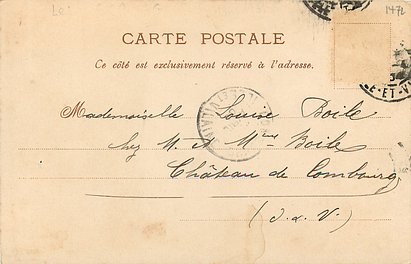 1472
CARTE POSTALE
Ce côté est exclusivement réservé à l'adresse.
E-ET-V
Mademoiselle Louise Boile
chez M. & Mme Boile
Château de Combourg
(I. & V.)